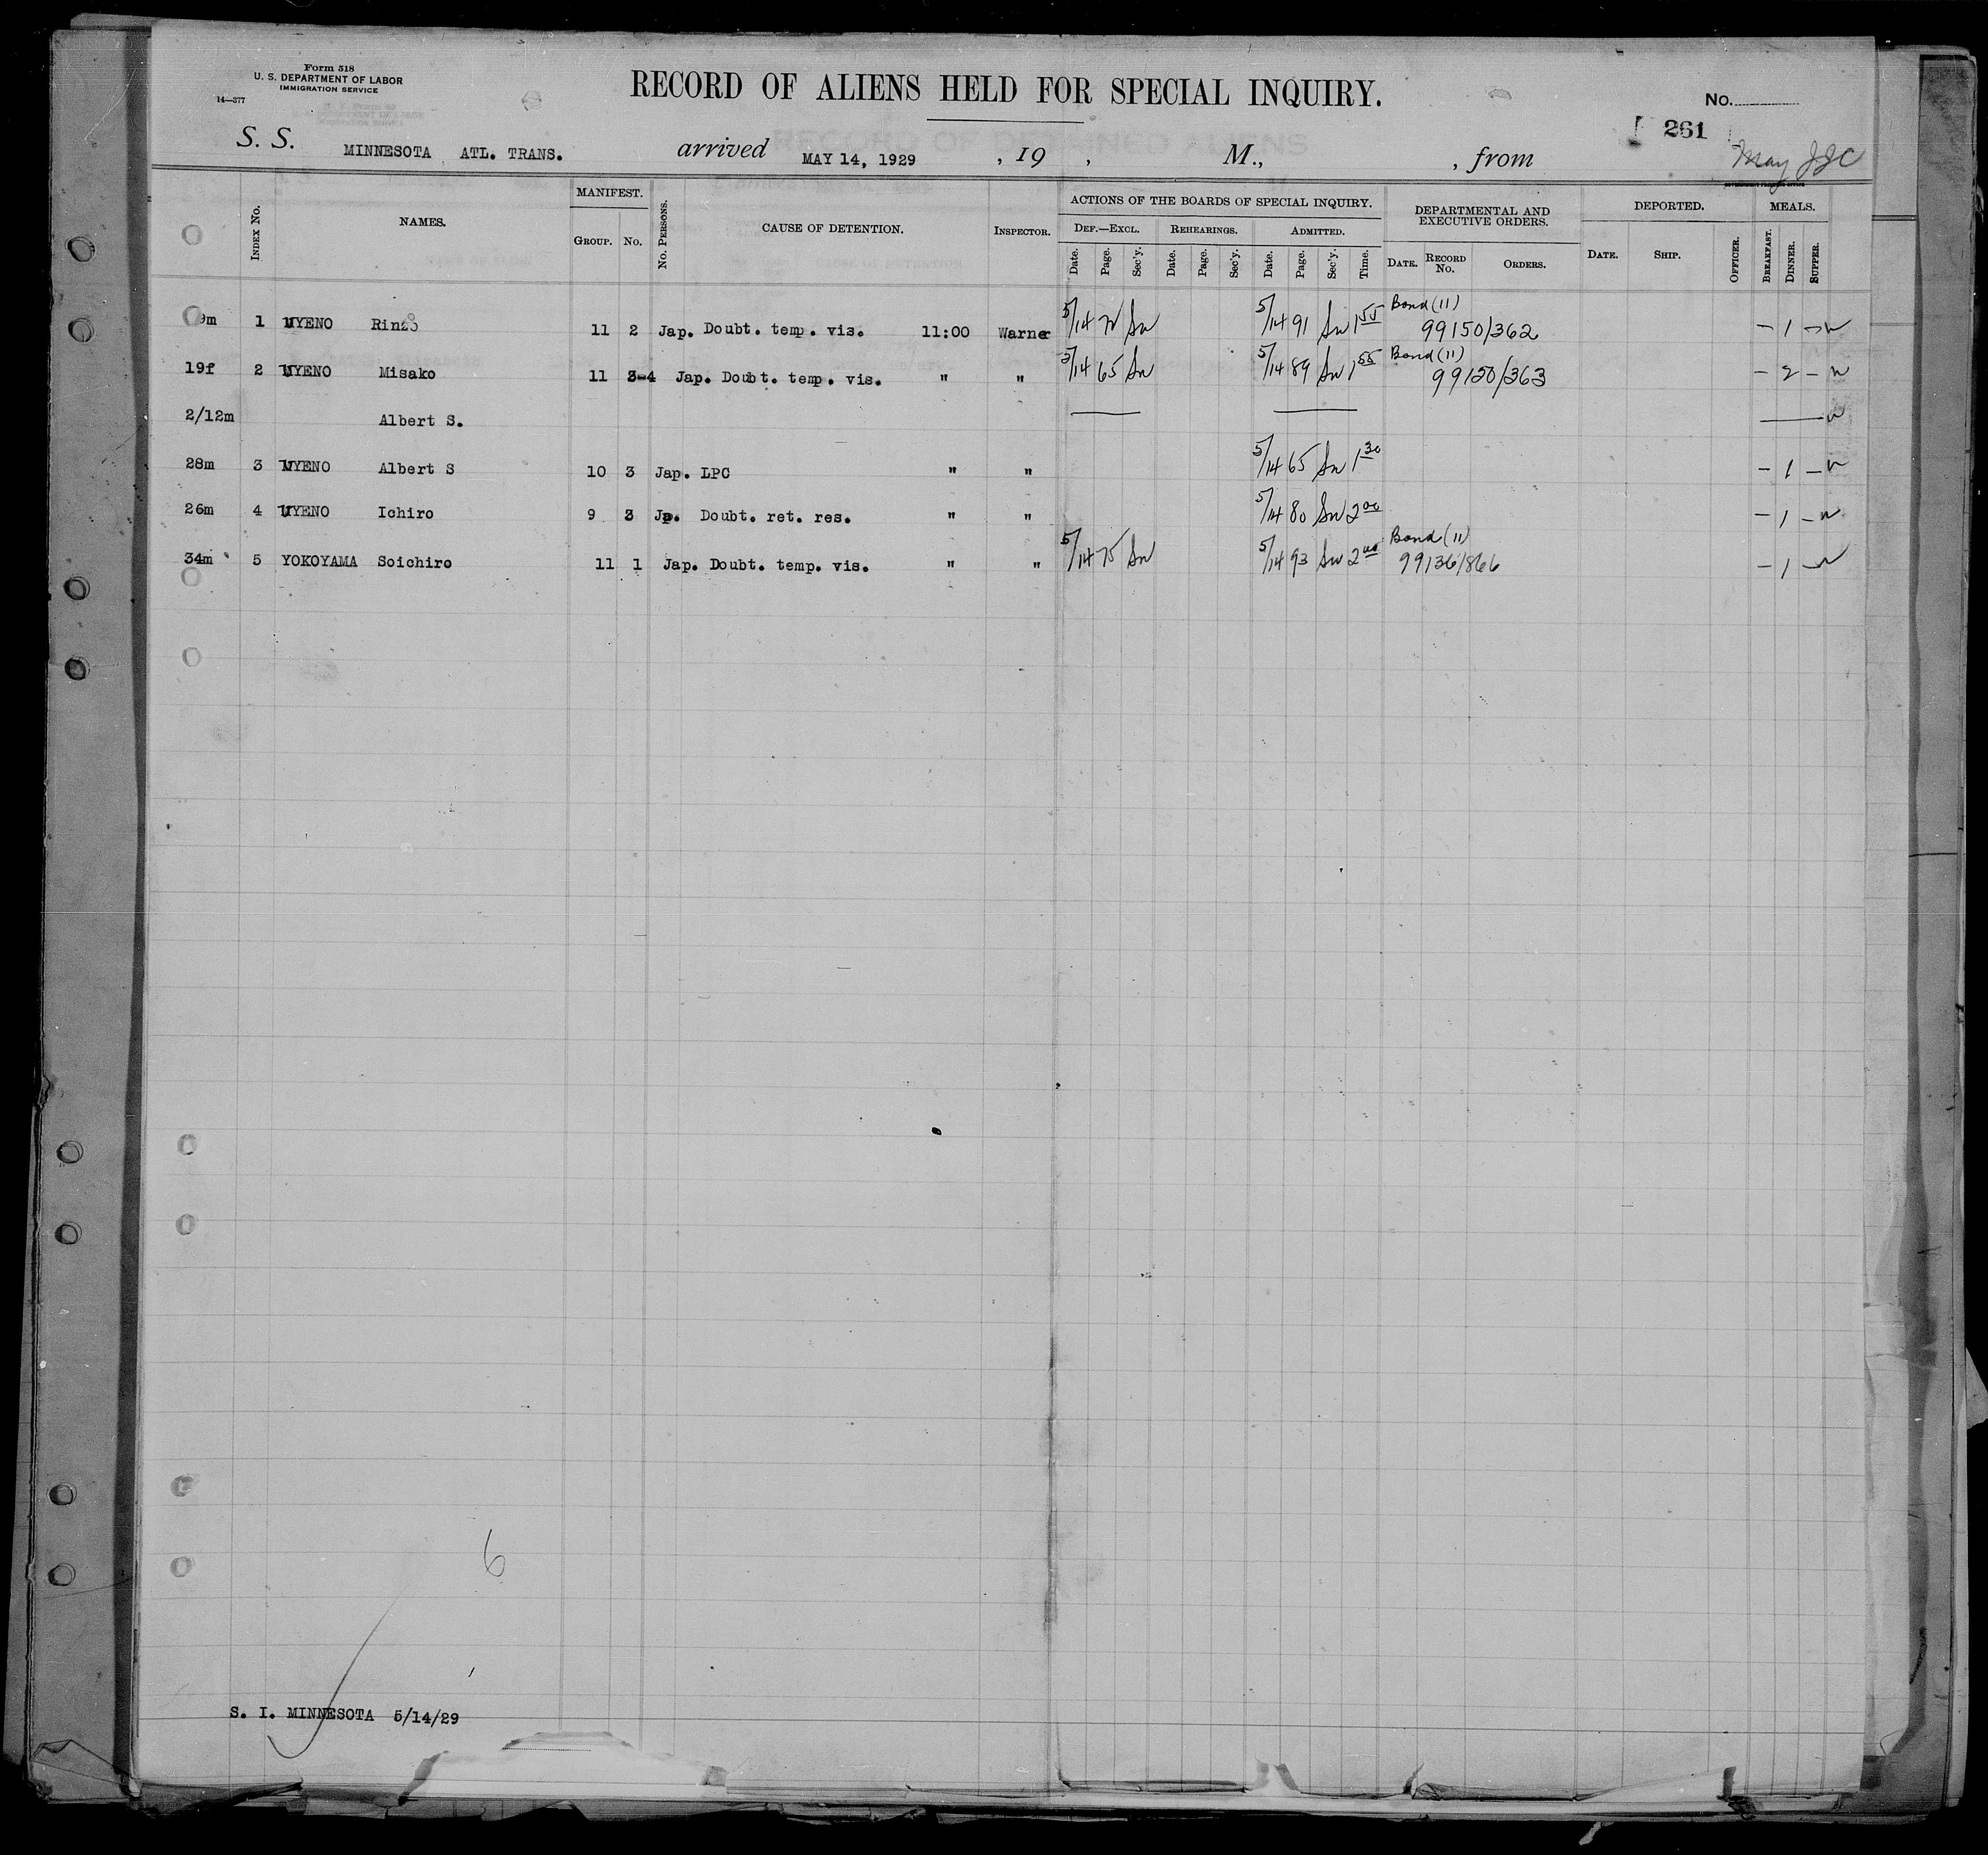 Form 518
U. S. DEPARTMENT OF LABOR
IMMIGRATION SERVICE
14—377
RECORD OF ALIENS HELD FOR SPECIAL INQUIRY.
No.
261
S. S. MINNESOTA ATL. TRANS. arrived MAY 14, 1929 , 19 , M., , from
May
INDEX No. NAMES. MANIFEST. GROUP. No. No. PERSONS. CAUSE OF DETENTION. INSPECTOR. ACTIONS OF THE BOARDS OF SPECIAL INQUIRY. DEF.—EXCL. Date. Page. Sec'y. REHEARINGS. Date. Page. Sec'y. ADMITTED. Date. Page. Sec'y. Time. DEPARTMENTAL AND EXECUTIVE ORDERS. DATE. RECORD No. ORDERS. DEPORTED. DATE. SHIP. OFFICER. MEALS. BREAKFAST. DINNER. SUPPER.
9m 1 UYENO Rinzo 11 2 Jap. Doubt. temp. vis. 11:00 Warner 5/14 Sw 5/14 91 Sw 1 55 Bond (11) 99150/362 – 1 –
19f 2 UYENO Misako 11 3-4 Jap. Doubt. temp. vis. " " 5/14 65 Sw 5/14 89 Sw 1 55 Bond (11) 99150/363 – 2 –
2/12m Albert S.
28m 3 UYENO Albert S 10 3 Jap. LPC " " 5/14 65 Sw 1 30 – 1 –
26m 4 UYENO Ichiro 9 3 Jp. Doubt. ret. res. " " 5/14 80 Sw 2 00 – 1 –
34m 5 YOKOYAMA Soichiro 11 1 Jap. Doubt. temp. vis. " " 5/14 75 Sw 5/14 93 Sw 2 00 Bond (11) 99136/866 – 1 –
6
S. I. MINNESOTA 5/14/29